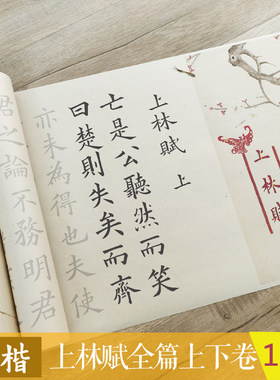 上林賦 上
亡是公聽然而笑
曰楚則失矣而齊
亦未為得也夫使
君之論不務明君
上林賦
楷
上林赋全篇上下卷
1